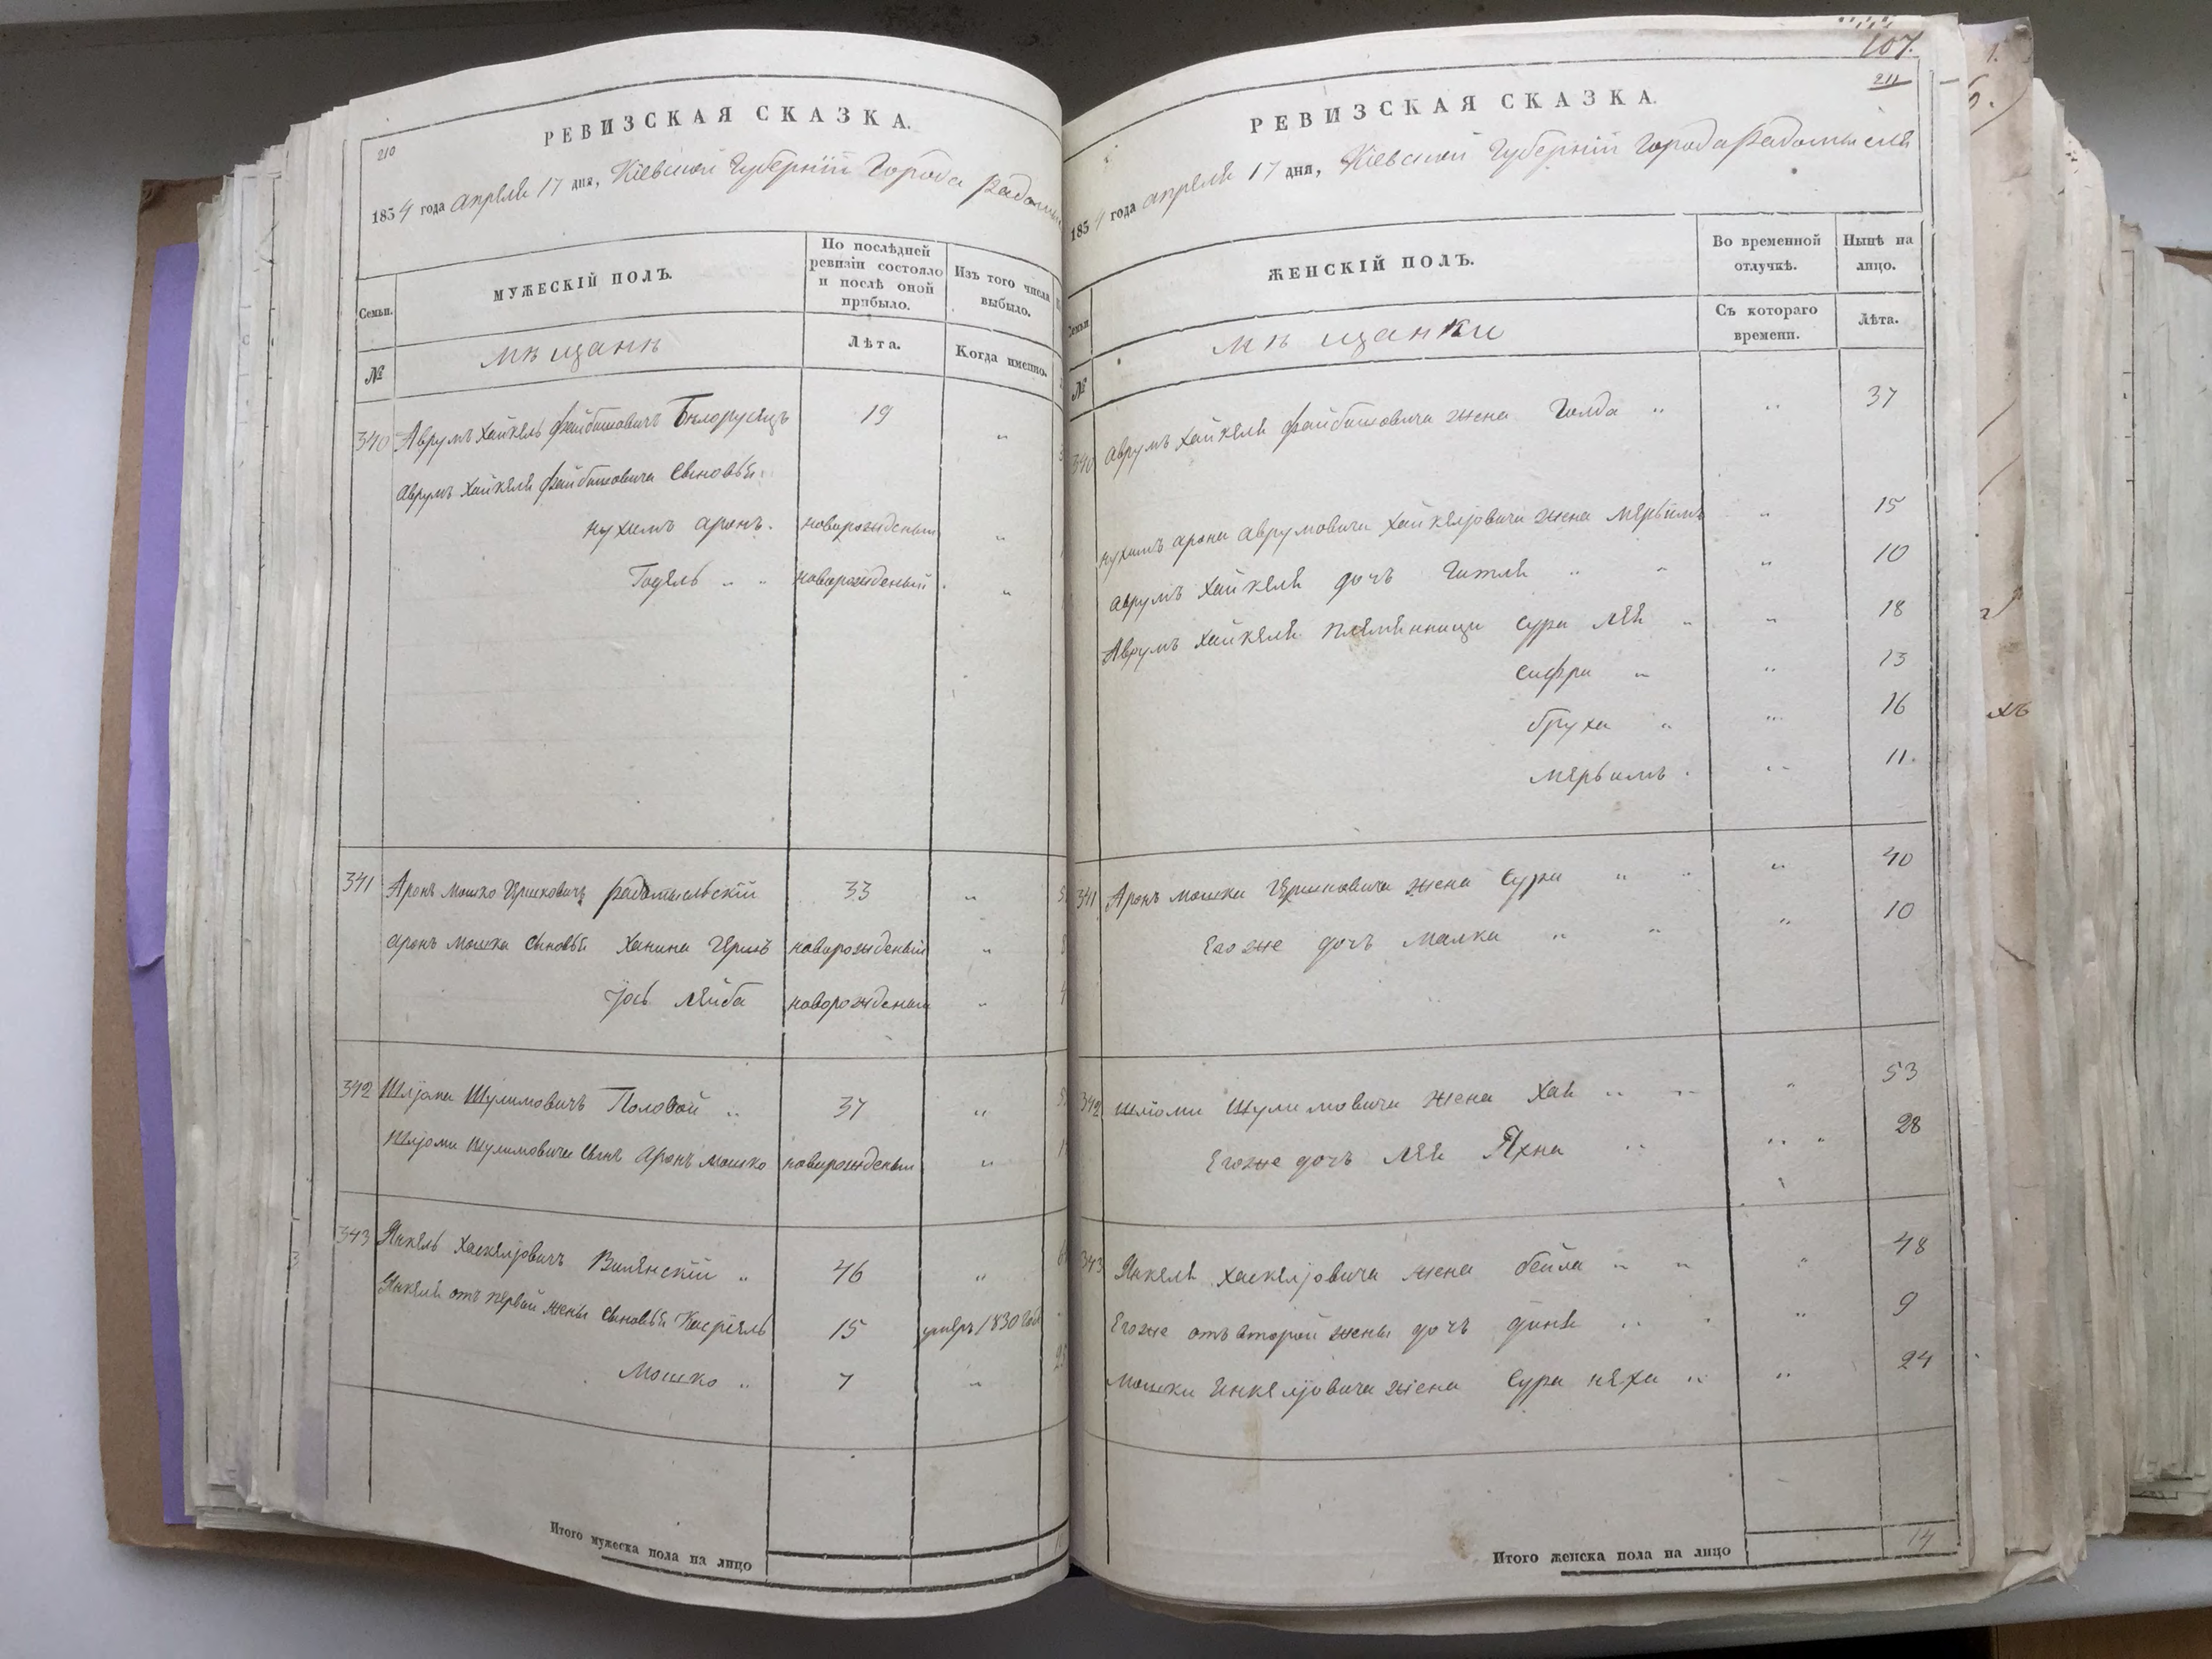 210
РЕВИЗСКАЯ СКАЗКА.
1854 года апреля 17 дня, Кіевской Губерніи Города Радомы
Семьи.
МУЖЕСКІЙ ПОЛЪ.
По послѣдней ревизіи состояло и послѣ оной прибыло.
Изъ того числа выбыло.
№
мѣщанѣ
Лѣта.
Когда именно.
340 Аврумъ Хайкель Файбишовичъ Бѣлорусецъ 19 "
Аврумъ Хайкеля Файбишовича Сыновья:
нухимъ аронъ. новорожденый "
Годель " " новорожденый "
341 Аронъ мошко Гершковичъ Радомысльскій 33 "
аронъ мошка сыновья Ханина Гершъ новорожденый "
Іось лейба новорожденый "
342 Шліома Шулимовичъ Половой " 37 "
Шліоми Шулимовича сынъ аронъ мошко новорожденый "
343 Янкель Хаскеліовичъ Вилянскій " 46 "
Янкеля отъ первой жены сыновья Касріель 15 умеръ 1830 года
Мошко " 7 "
Итого мужеска пола на лицо
107.
211
РЕВИЗСКАЯ СКАЗКА.
1854 года апреля 17 дня, Кіевской Губерніи Города Радомысля
Семьи
ЖЕНСКІЙ ПОЛЪ.
Во временной отлучкѣ.
Нынѣ на лицо.
№
мѣщанки
Съ котораго времени.
Лѣта.
340 Аврумъ Хайкеля Файбишовича жена Голда " " 37
нухимъ арона аврумовича хайкеліовича жена мерьимъ " 15
аврумъ хайкеля дочъ Гитля " " " 10
Аврумъ хайкеля племянници сура лея " " 18
сифра " " 13
бруха " " 16
мерьимъ . " 11.
341 Аронъ мошка Гершковича жена Сура " " " 40
Его же дочъ малка " " " 10
342 шліоми Шулимовича жена Хая " " " 53
Егоже дочъ лея Яхна " " " 28
343 Янкеля хаскеліовича жена бейла " " " 48
Егоже отъ второй жены дочъ финя " " " 9
Мошки Янкеліовича жена Сура неха " " 24
Итого женска пола на лицо 14